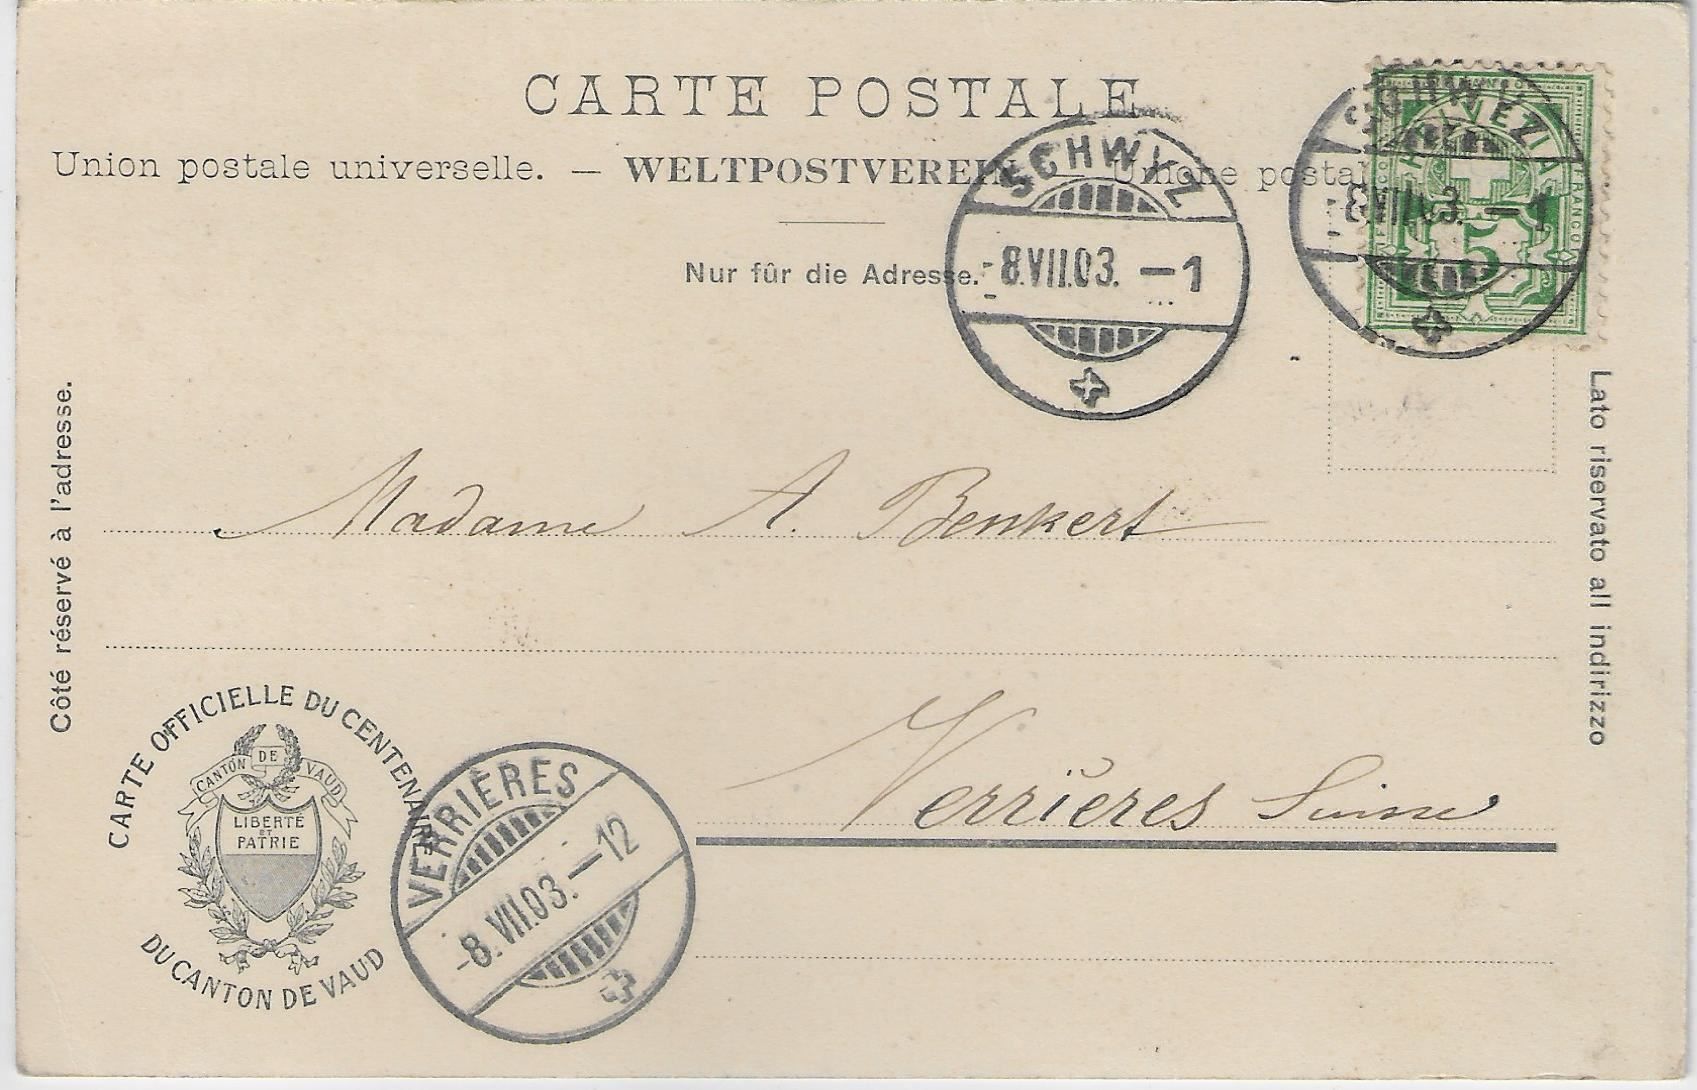 CARTE POSTALE
Union postale universelle. — WELTPOSTVEREIN — Unione postale
Nur für die Adresse.
SCHWYZ
-8.VII.03. —1
SCHWYZ
-8.VII.03. —1
HELVEZIA
FRANCO
5
Côté réservé à l'adresse.
Lato riservato all indirizzo
Madame A. Benkert
Verrières Suisse
CARTE OFFICIELLE DU CENTENAIRE
CANTON DE VAUD
LIBERTÉ
ET
PATRIE
DU CANTON DE VAUD
VERRIÈRES
-8.VII.03.—12